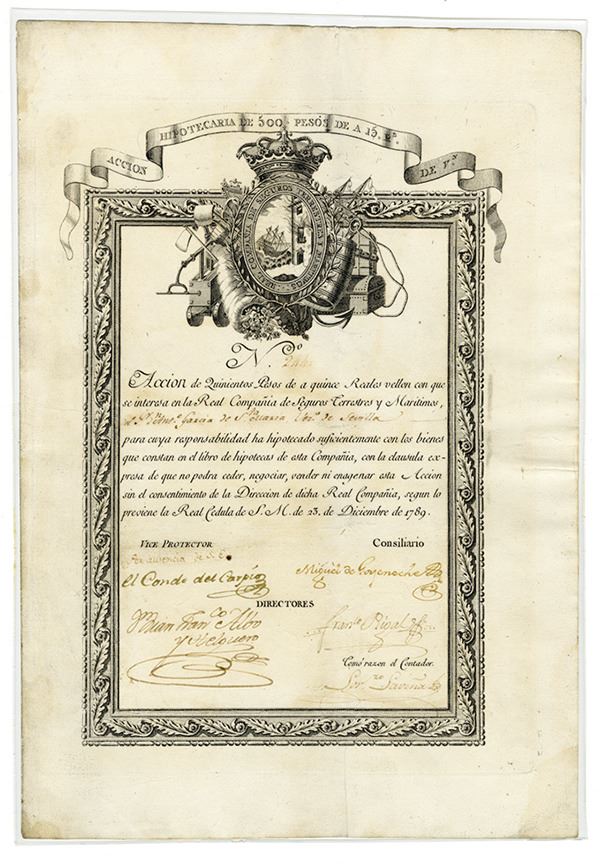 ACCION HIPOTECARIA DE 500. PESOS DE A 15. Rs. DE Vn
REAL COMPAÑIA DE SEGUROS TERRESTRES Y MARITIMOS
N.º
Accion de Quinientos Pesos de a quince Reales vellon con que
se interesa en la Real Compañia de Seguros Terrestres y Maritimos,
Garcia de Sta Maria de Sevilla
para cuya responsabilidad ha hipotecado suficientemente con los bienes
que constan en el libro de hipotecas de esta Compañia, con la clausula ex-
presa de que no podra ceder, negociar, vender ni enagenar esta Accion
sin el consentimiento de la Direccion de dicha Real Compañia, segun lo
previene la Real Cedula de S. M. de 23. de Diciembre de 1789.
VICE PROTECTOR Consiliario
ausencia de S.E.
El Conde del Carpio Miguel de Goyeneche
DIRECTORES
Juan Franco Albo Franco Rigal
y Helguero
Tomó razon el Contador.